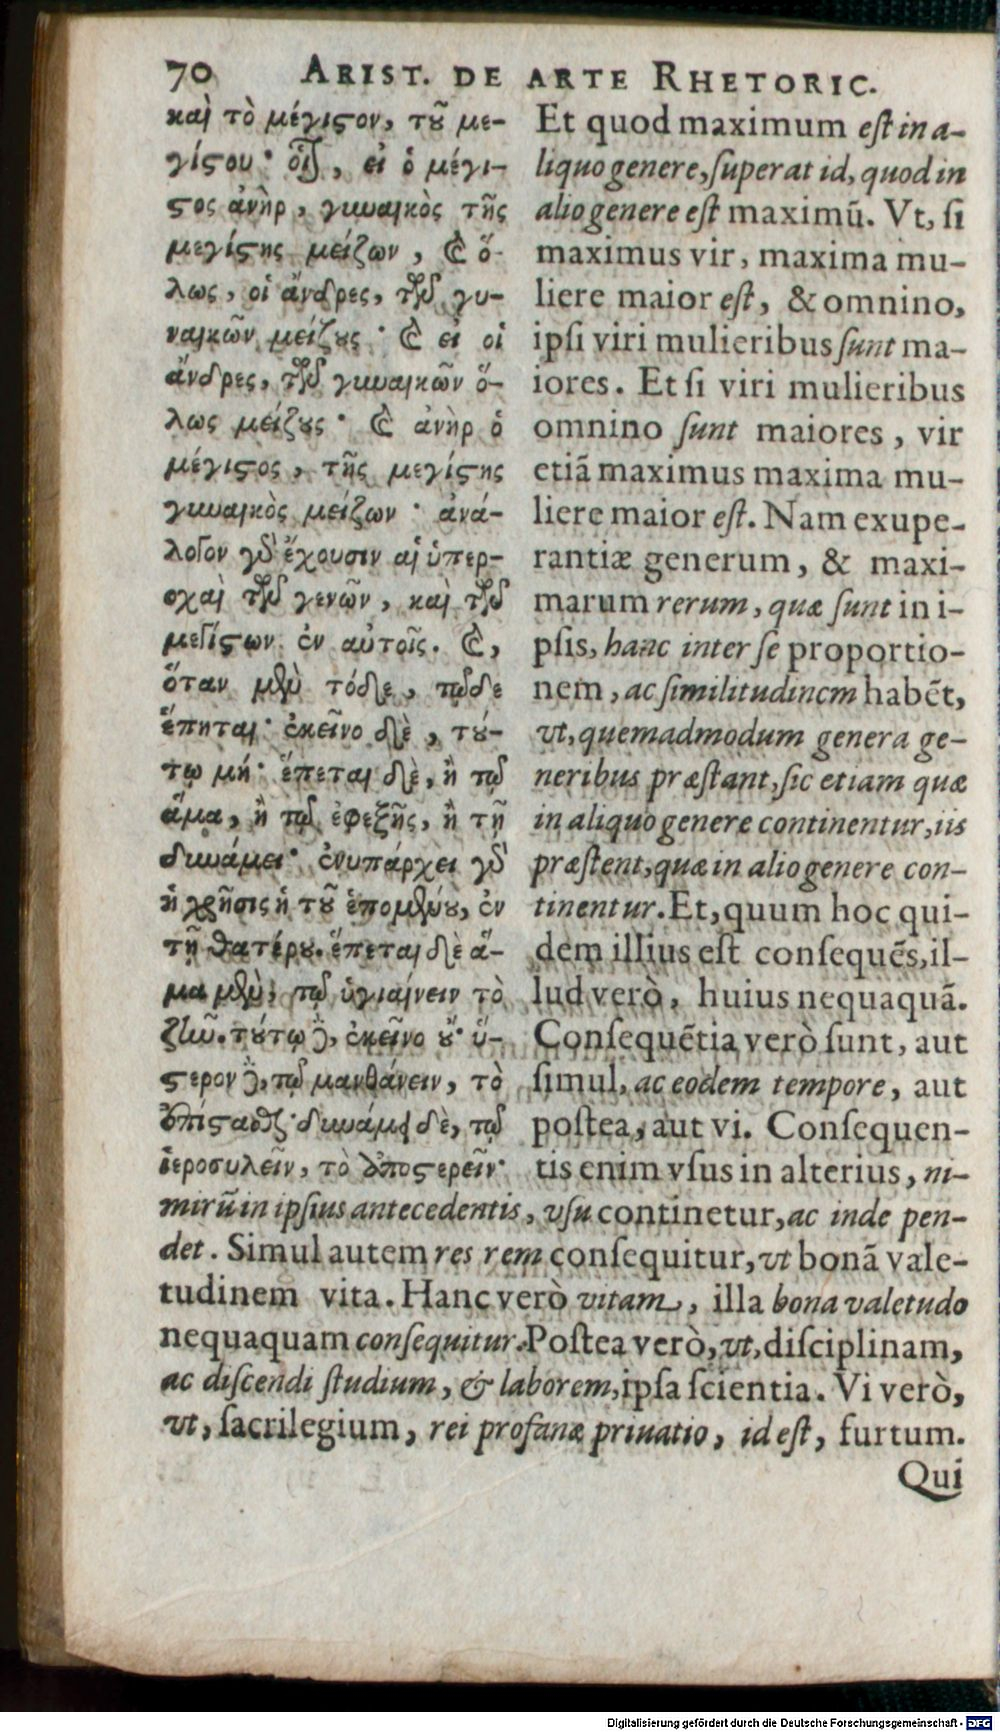 70 ARIST. DE ARTE RHETORIC.
καὶ τὸ μέγιςον, τȣ͂ με-
γίςου· οἷον, εἰ ὁ μέγι-
ςος ἀνὴρ, γυναικὸς τῆς
μεγίςης μείζων, καὶ ὅ-
λως, οἱ ἄνδρες, τῶν γυ-
ναικῶν μείζȣς· καὶ εἰ οἱ
ἄνδρες, τῶν γυναικῶν ὅ-
λως μείζȣς· καὶ ἀνὴρ ὁ
μέγιςος, τῆς μεγίςης
γυναικὸς μείζων· ἀνά-
λογον γὰρ ἔχουσιν αἱ ὑπερ-
οχαὶ τῶν γενῶν, καὶ τῶν
μεγίςων ἐν αὐτοῖς. καὶ,
ὅταν μὲν τόδε, τῷδε
ἕπηται· ἐκεῖνο δὲ, τȣ́-
τῳ μή· ἕπεται δὲ, ἢ τῷ
ἅμα, ἢ τῷ ἐφεξῆς, ἢ τῇ
δυνάμει· ἐνυπάρχει γὰρ
ἡ χρῆσις ἡ τȣ͂ ἑπομένȣ, ἐν
τῇ θατέρȣ. ἕπεται δὲ ἅ-
μα μὲν, τῷ ὑγιαίνειν τὸ
ζῆν. τȣ́τῳ δὲ, ἐκεῖνο ȣ̓· ὕ-
ςερον δὲ, τῷ μανθάνειν, τὸ
ἐπίςασθαι· δυνάμει δὲ, τῷ
ἱεροσυλεῖν, τὸ ἀποςερεῖν·
Et quod maximum eſt in a-
liquo genere, ſuperat id, quod in
alio genere eſt maximū. Vt, ſi
maximus vir, maxima mu-
liere maior eſt, & omnino,
ipſi viri mulieribus ſunt ma-
iores. Et ſi viri mulieribus
omnino ſunt maiores, vir
etiā maximus maxima mu-
liere maior eſt. Nam exupe-
rantiæ generum, & maxi-
marum rerum, quæ ſunt in i-
pſis, hanc inter ſe proportio-
nem, ac ſimilitudinem habēt,
vt, quemadmodum genera ge-
neribus præſtant, ſic etiam quæ
in aliquo genere continentur, iis
præſtent, quæ in alio genere con-
tinentur. Et, quum hoc qui-
dem illius eſt conſequēs, il-
lud verò, huius nequaquā.
Conſequētia verò ſunt, aut
ſimul, ac eodem tempore, aut
poſtea, aut vi. Conſequen-
tis enim vſus in alterius, ni-
mirū in ipſius antecedentis, vſu continetur, ac inde pen-
det. Simul autem res rem conſequitur, vt bonā vale-
tudinem vita. Hanc verò vitam, illa bona valetudo
nequaquam conſequitur. Poſtea verò, vt, diſciplinam,
ac diſcendi ſtudium, & laborem, ipſa ſcientia. Vi verò,
vt, ſacrilegium, rei profanæ priuatio, id eſt, furtum.
Qui
Digitalisierung gefördert durch die Deutsche Forschungsgemeinschaft - DFG